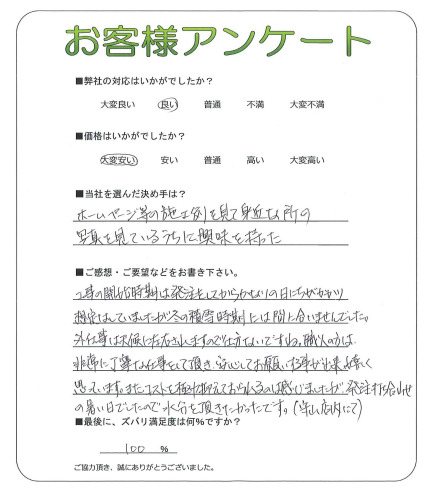 お客様アンケート
■弊社の対応はいかがでしたか？
大変良い 良い 普通 不満 大変不満
■価格はいかがでしたか？
大変安い 安い 普通 高い 大変高い
■当社を選んだ決め手は？
ホームページ等の施工例を見て身近な所の
写真を見ているうちに興味を持った
■ご感想・ご要望などをお書き下さい。
工事の開始時期は発注をしてからかなりの日にちがかかり
想定はしていましたが冬の積雪時期には間に合いませんでした。
外仕事はお天候に左右しますので仕方ないですね。職人の方は
非常に丁寧な仕事をして頂き、安心してお願い出来
思っています。またコストを極力抑えておられるのは感じましたが発注打ち合わせ
の暑い日でしたので水分を頂きたかったです。(店内にて)
■最後に、ズバリ満足度は何％ですか？
100 ％
ご協力頂き、誠にありがとうございました。